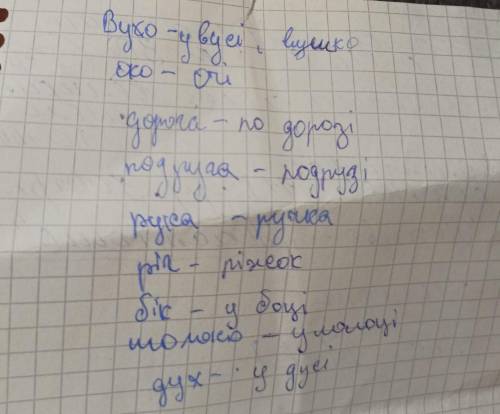 Вухо - у вусі, вушко
око - очі
дорога - по дорозі
подруга - подрузі
рука - ручка
ріг - ріжок
бік - у боці
молоко - у молоці
дух - у дусі